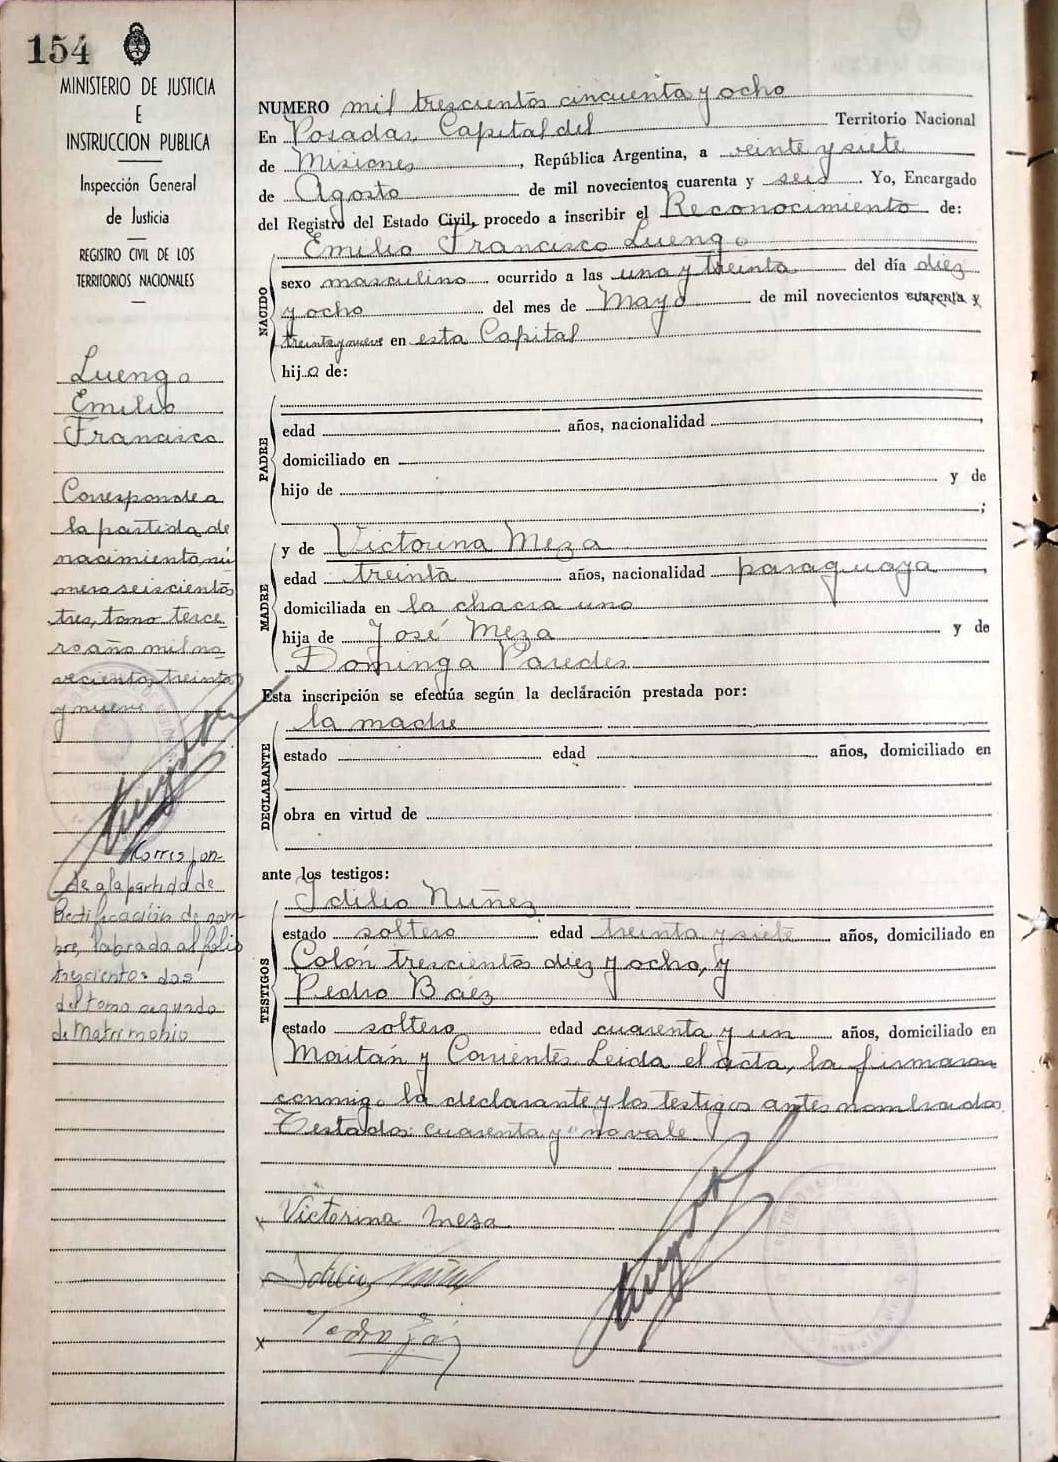 154
MINISTERIO DE JUSTICIA
E
INSTRUCCION PUBLICA
Inspección General
de Justicia
REGISTRO CIVIL DE LOS
TERRITORIOS NACIONALES
Luengo
Emilio
Francisco
Corresponde a
la partida de
nacimiento nú
mero seiscientos
tres, tomo terce
ro año mil no
vecientos treinta
y nueve
Corris pon-
de a la partida de
Rectificación de nom-
bre, labrada al folio
trescientos dos
del tomo segundo
de Matrimonio
NUMERO mil trescientos cincuenta y ocho
En Posadas, Capital del Territorio Nacional
de Misiones, República Argentina, a veinte y siete
de Agosto de mil novecientos cuarenta y seis. Yo, Encargado
del Registro del Estado Civil, procedo a inscribir el Reconocimiento de:
NACIDO
Emilio Francisco Luengo
sexo masculino ocurrido a las una y treinta del día diez
y ocho del mes de Mayo de mil novecientos cuarenta y
treinta y nueve en esta Capital
hijo de:
PADRE
edad años, nacionalidad
domiciliado en
hijo de y de
;
MADRE
y de Victorina Meza
edad treinta años, nacionalidad paraguaya,
domiciliada en la chacra uno
hija de José Meza y de
Dominga Paredes
Esta inscripción se efectúa según la declaración prestada por:
DECLARANTE
la madre
estado edad años, domiciliado en
obra en virtud de
ante los testigos:
TESTIGOS
Idilio Nuñez
estado soltero edad treinta y siete años, domiciliado en
Colón trescientos diez y ocho, y
Pedro Baez
estado soltero edad cuarenta y un años, domiciliado en
Maitán y Corrientes. Leida el acta, la firmaron
conmigo la declarante y los testigos antes nombrados.
Testados: cuarenta y" no vale.
x Victorina Meza
Idilio Nuñez
x Pedro